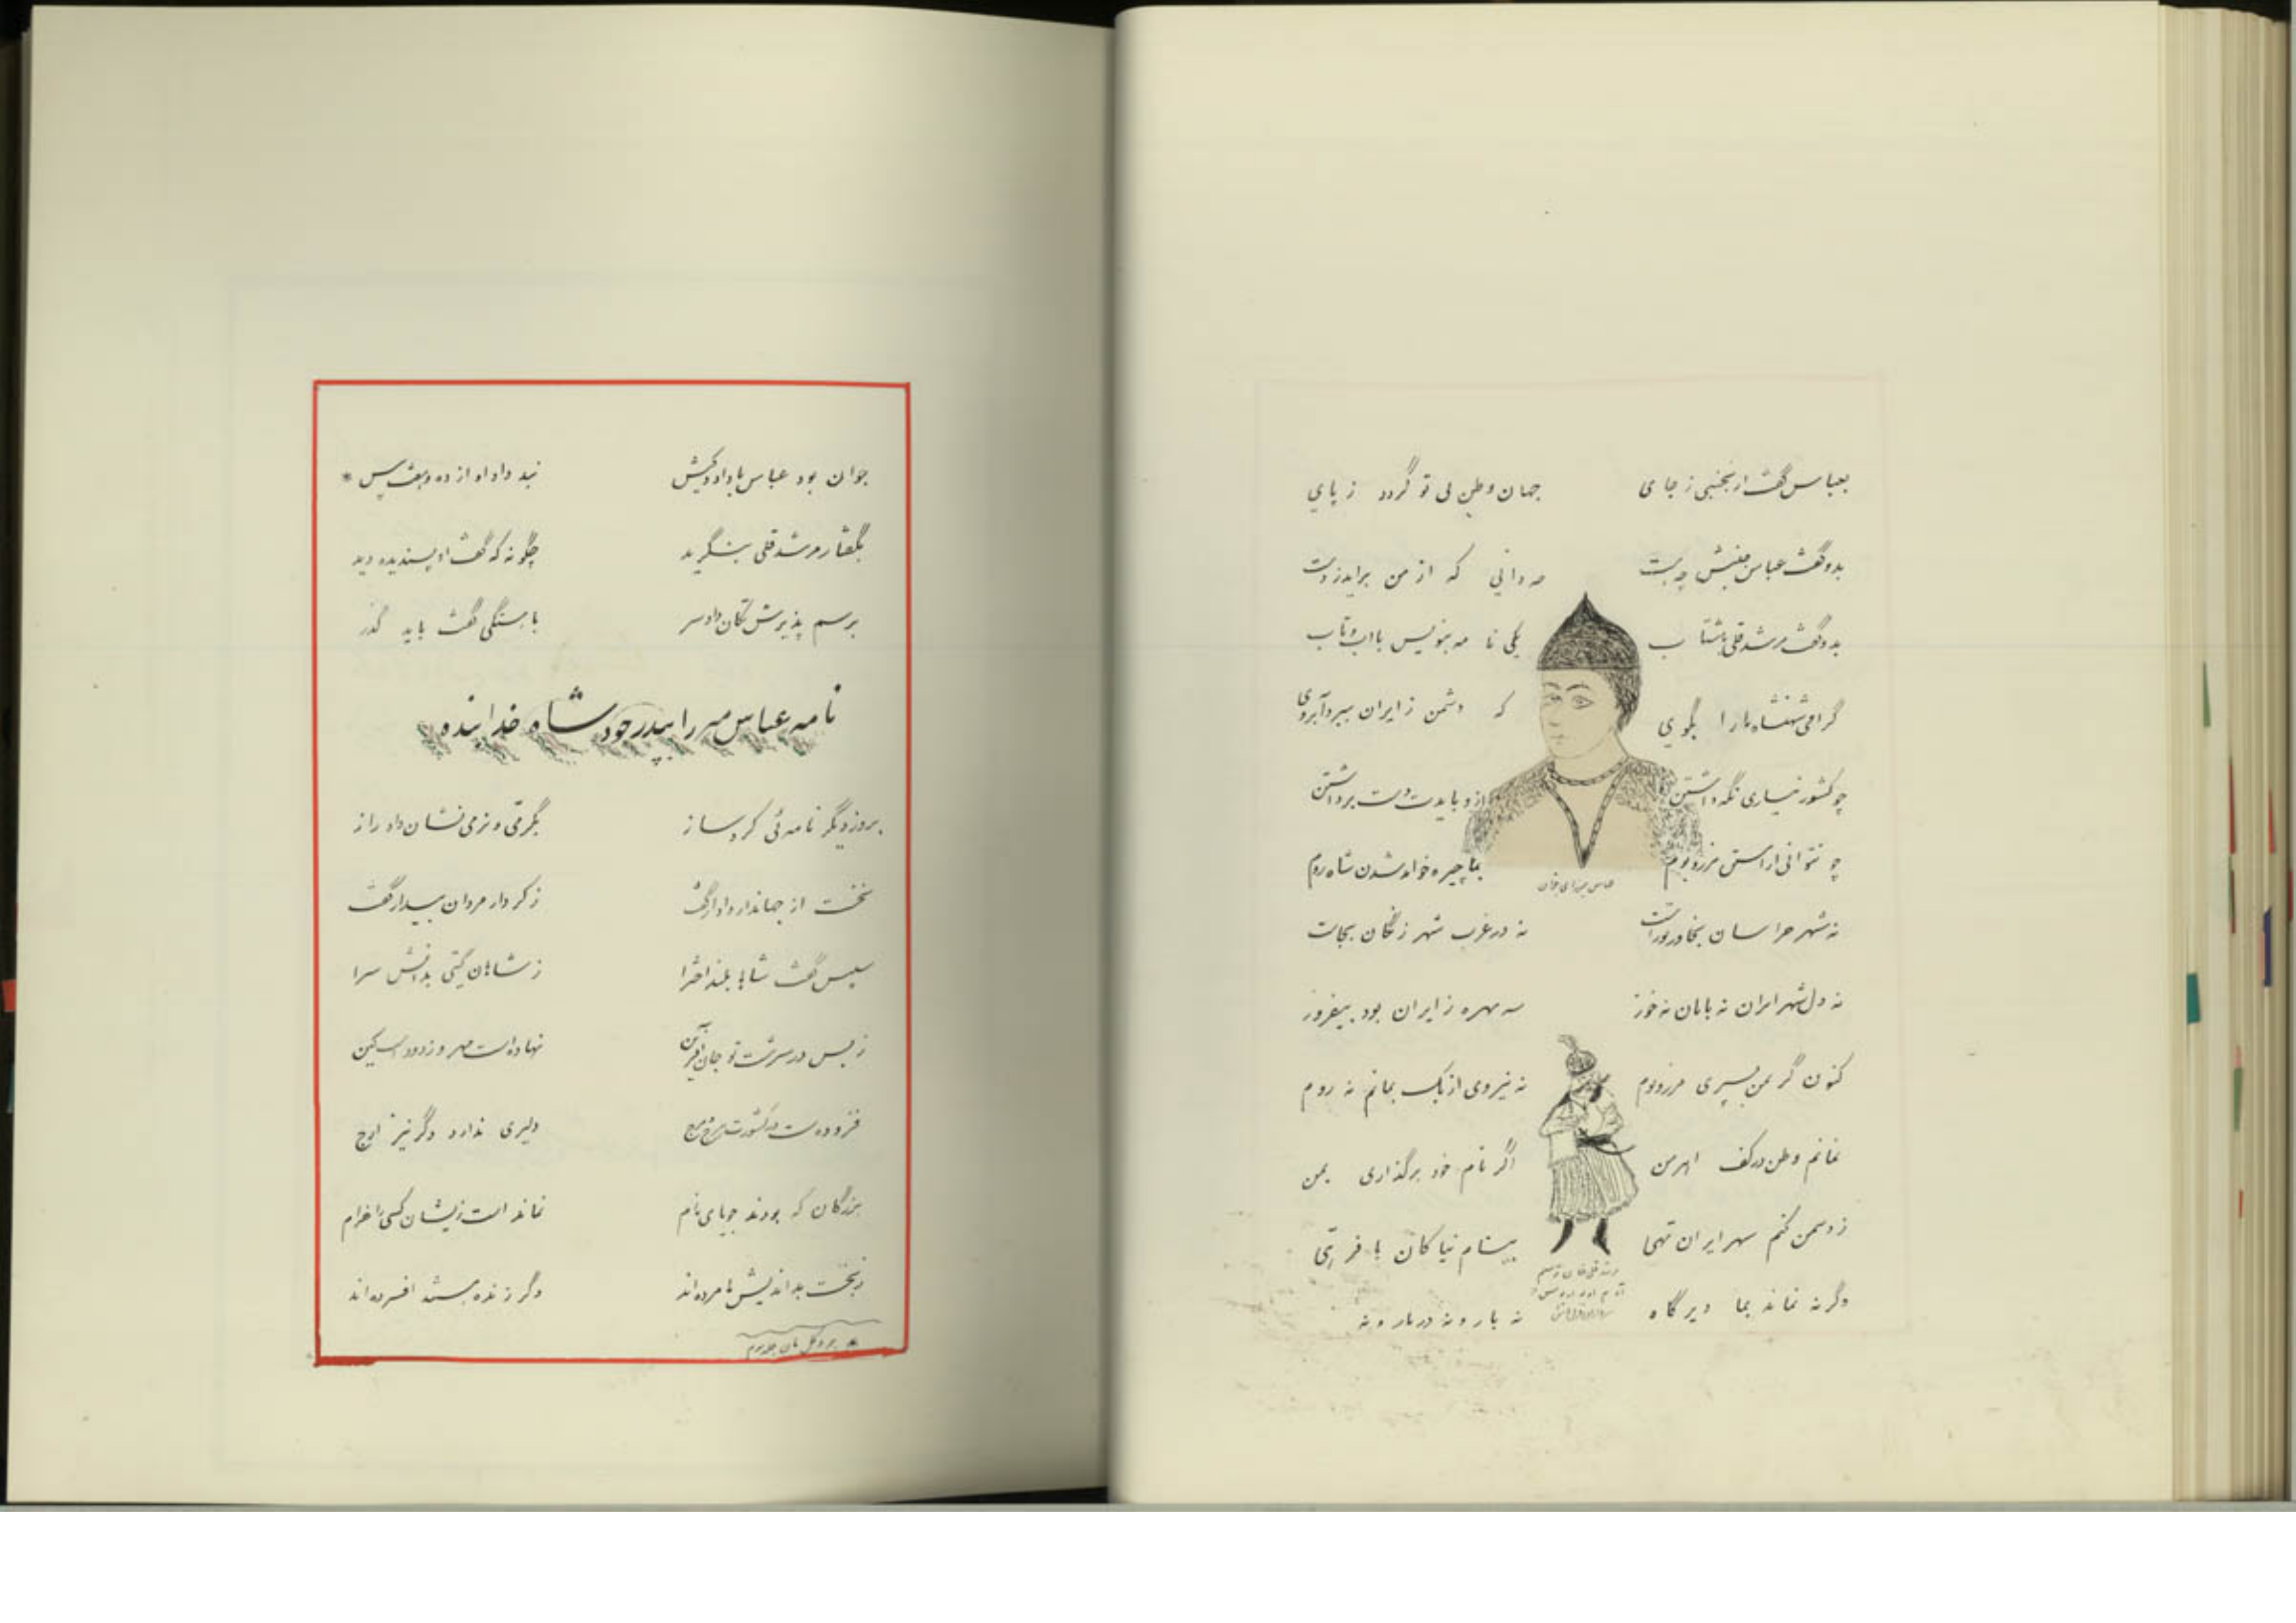 بعباس گفت ار نجنبی ز جای
جهان وطن بی تو گردد ز پای
بدو گفت عباس جنبش چه است
چه دانی که از من براید ز دست
بدو گفت مرشد قلی با شتاب
یکی نامه بنویس با اب و تاب
گرامی شهنشاه ما را بگوی
که دشمن ز ایران ببرد آبروی
چو کشور نیاری نگه داشتن
از و بایدت دست برداشتن
چو نتوانی اراستن مرز و بوم
بما چیره خواهد شدن شاه روم
عباس میرزای جوان
نه شهر خراسان بخاور تو راست
نه در غرب شهر زنگان بجاست
نه دل شهر ایران نه بابان نه خوز
نه بهره ز ایران بود
کنون گر بمن بسپری مرز و بوم
نه نیروی ازبک بمانم نه روم
نمانم وطن در کف اهرمن
اگر نام خود برگذاری بمن
ز دشمن کنم شهر ایران تهی
بنام نیاکان با فرهی
وگرنه نماند بما دیر گاه
نه بار و نه دربار و نه
جوان بود عباس با داد و کیش
نبد داد او از ده و هفت بیش *
بگفتار مرشد قلی بنگرید
چگونه که گفت او پسندیده دید
برسم پذیرش تکان داد سر
باهستگی گفت باید گذر
نامه عباس میرزا بپدر خود شاه خدابنده
بروز دیگر نامه‌ئی کرد ساز
بگرمی و نرمی نشان داد راز
نخست از جهاندار دادار گفت
ز کردار مردان بیدار گفت
سپس گفت شاها بلند اخترا
ز شاهان گیتی بدانش سرا
ز بس در سرشت تو جان آفرین
نهاده است مهر و زدوده است کین
فزوده‌ست در کشورت هرج مرج
دلیری ندارد دگر نیز ارج
بزرگان که بودند جویای نام
نمانده است زیشان کسی را خرام
ز بخت بداندیش ها مرده‌اند
وگر زنده هستند افسرده‌اند